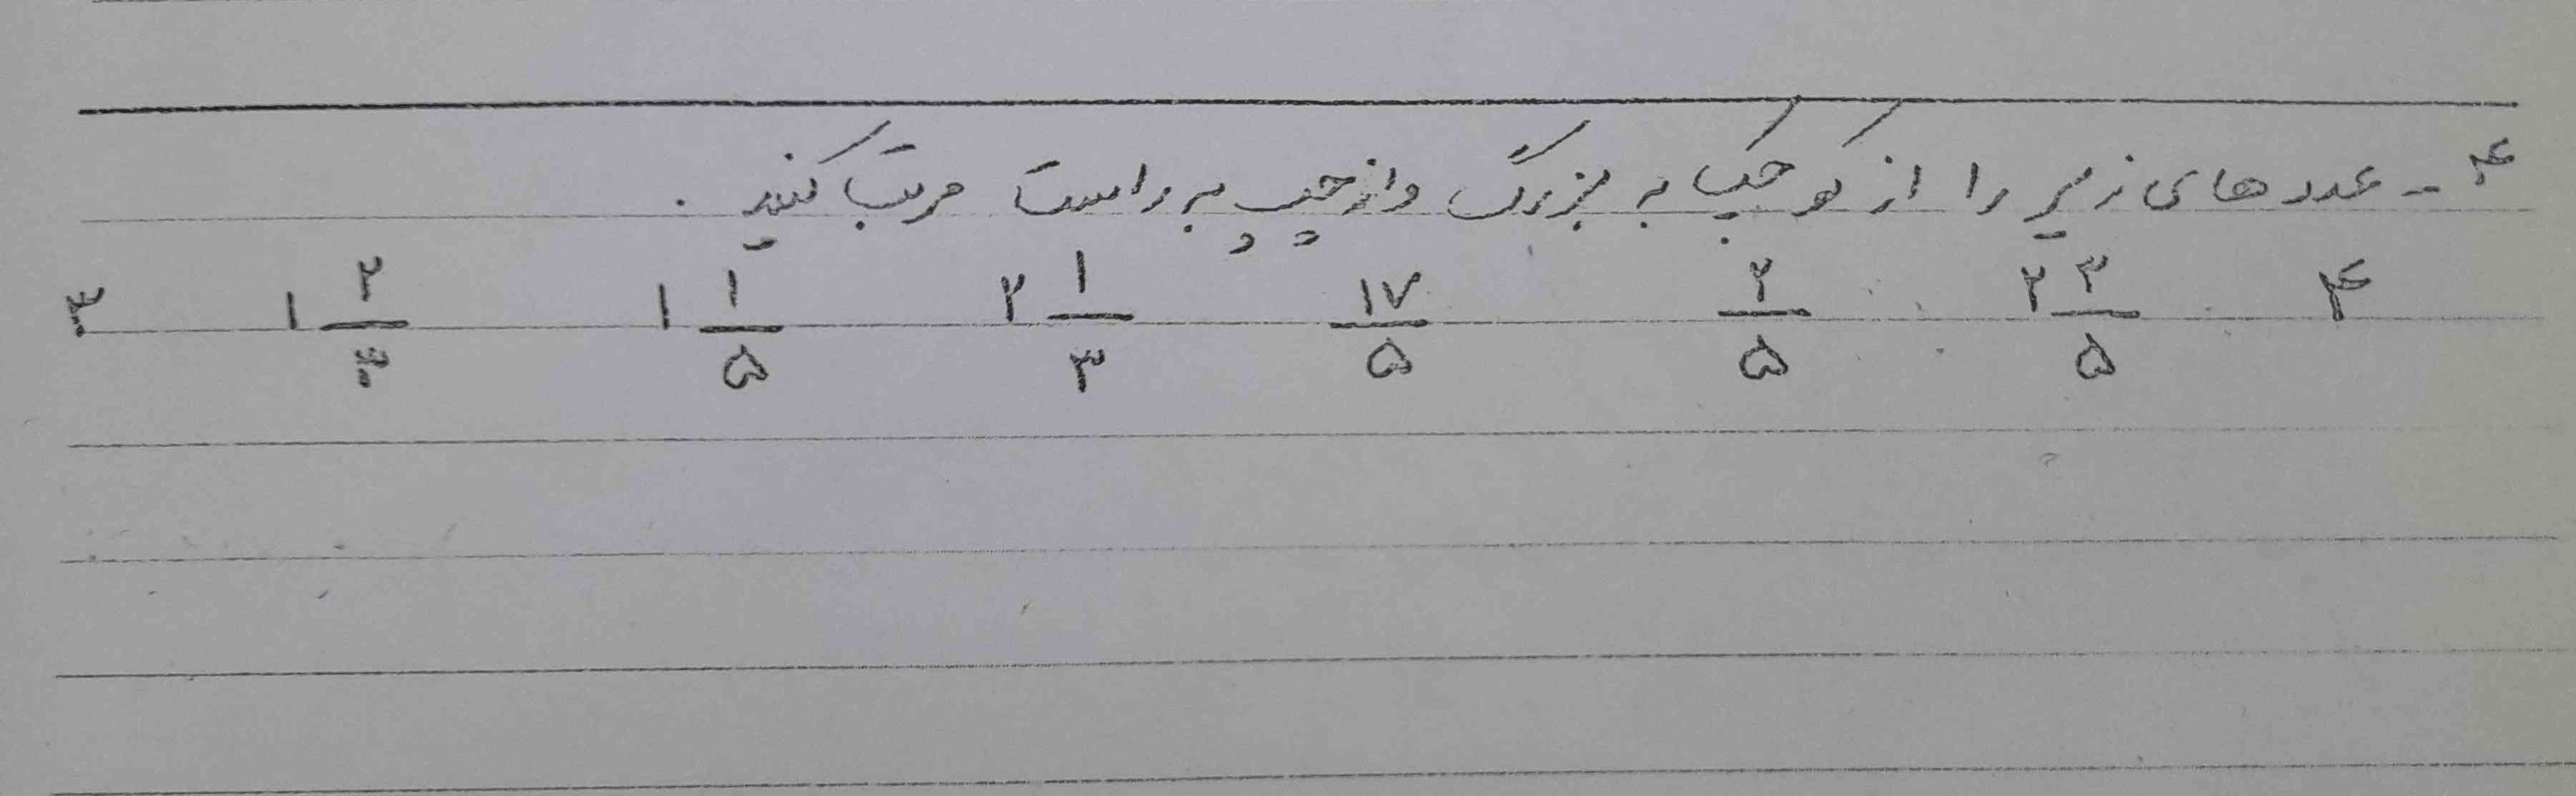 ۴ - عددهای زیر را از کوچک به بزرگ و از چپ به راست مرتب کنید .
۳ ۱ ۲/۳ ۱ ۱/۵ ۲ ۱/۳ ۱۷/۵ ۲/۵ ۲ ۳/۵ ۴